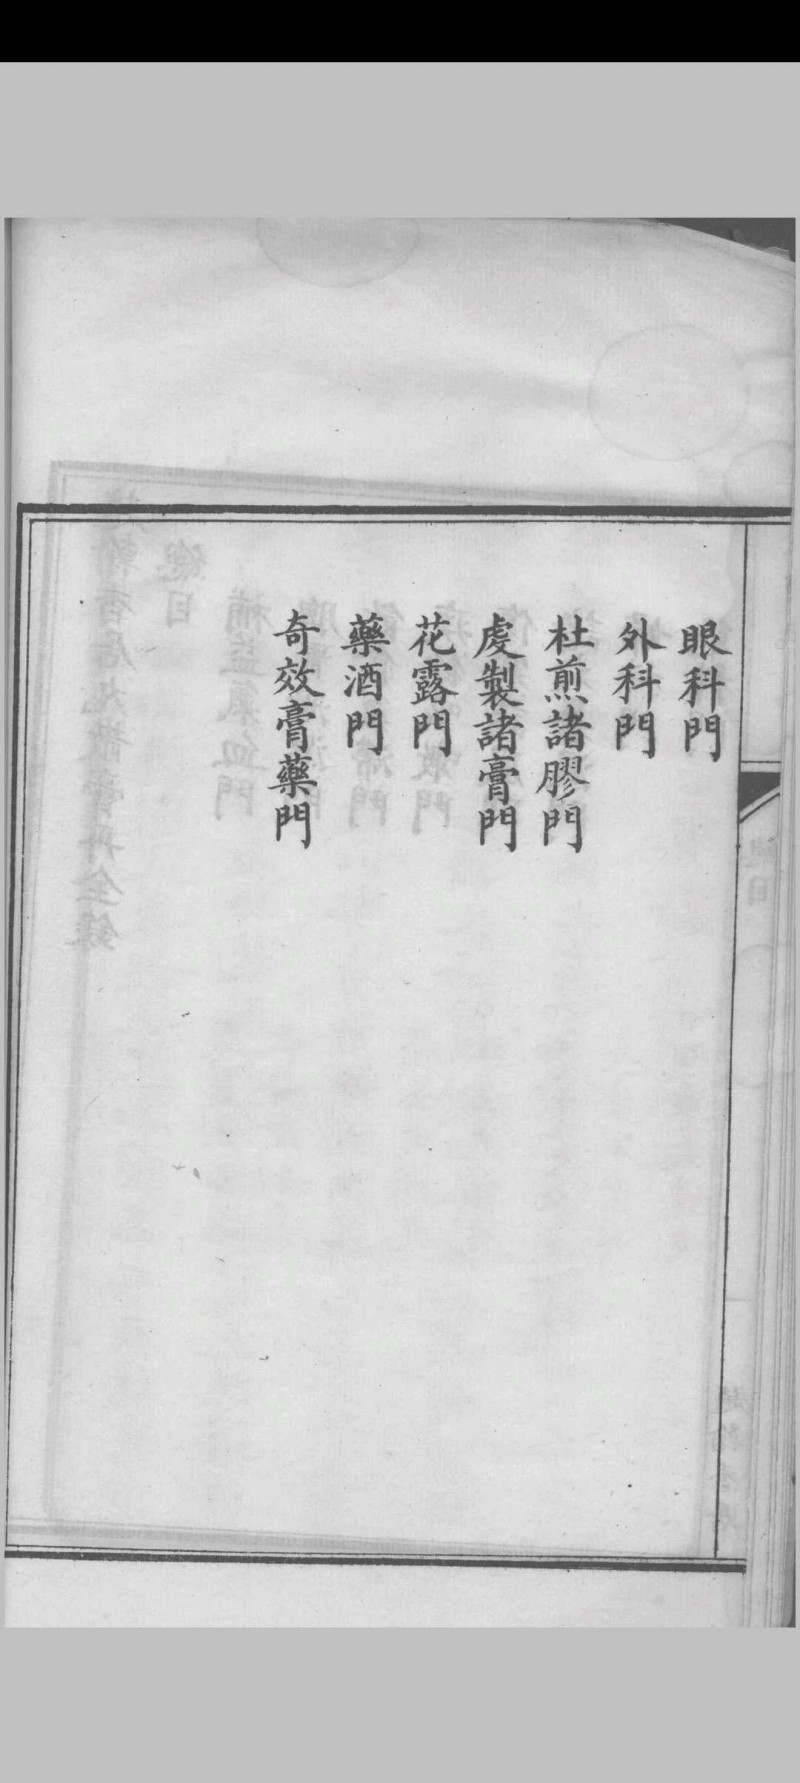 眼科門
外科門
杜煎諸膠門
虔製諸膏門
花露門
藥酒門
奇效膏藥門
總目